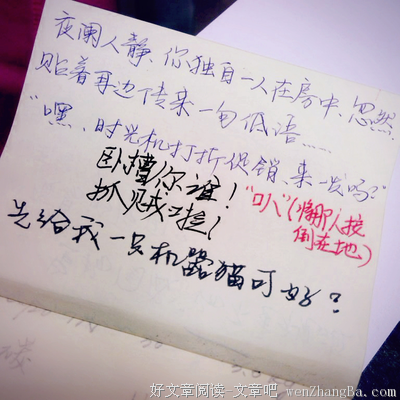 夜阑人静、你独自一人在房中、忽然
贴着耳边传来一句低语……
“嘿、时光机打折促销、来一发吗?”
卧槽你谁！
抓贼啦！
"叭"(将那人按
倒在地)
先给我一只机器猫可好？
好文章阅读-文章吧 wenZhangBa.com